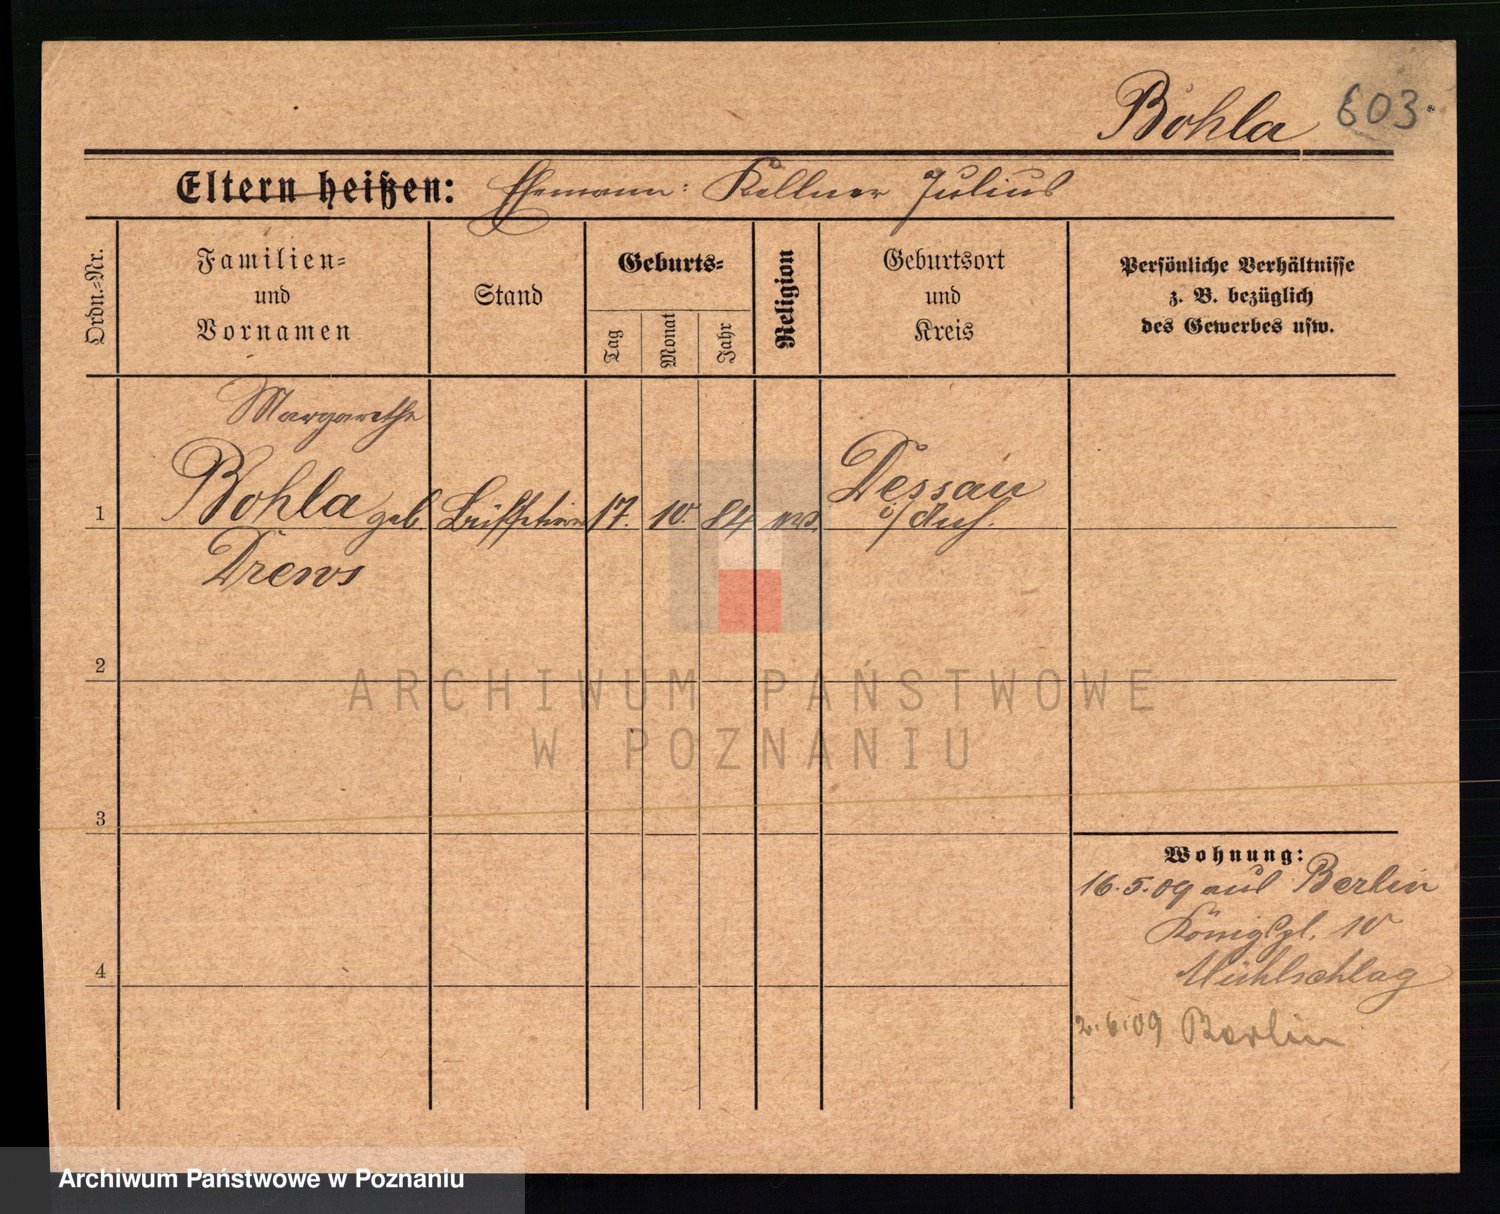 Bohla 603.
Eltern heißen: Ehemann: Kellner Julius
Ordn.-Nr.
Familien-
und
Vornamen
Stand
Geburts-
Tag
Monat
Jahr
Religion
Geburtsort
und
Kreis
Persönliche Verhältnisse
z. B. bezüglich
des Gewerbes usw.
Margarethe
1 Bohla geb. 17. 10. 84 Dessau
Drews i/Anh.
2
3
4
Wohnung:
16.5.09 aus Berlin
Königspl. 10
Mühlschlag
2.6.09 Berlin
ARCHIWUM PAŃSTWOWE
W POZNANIU
Archiwum Państwowe w Poznaniu